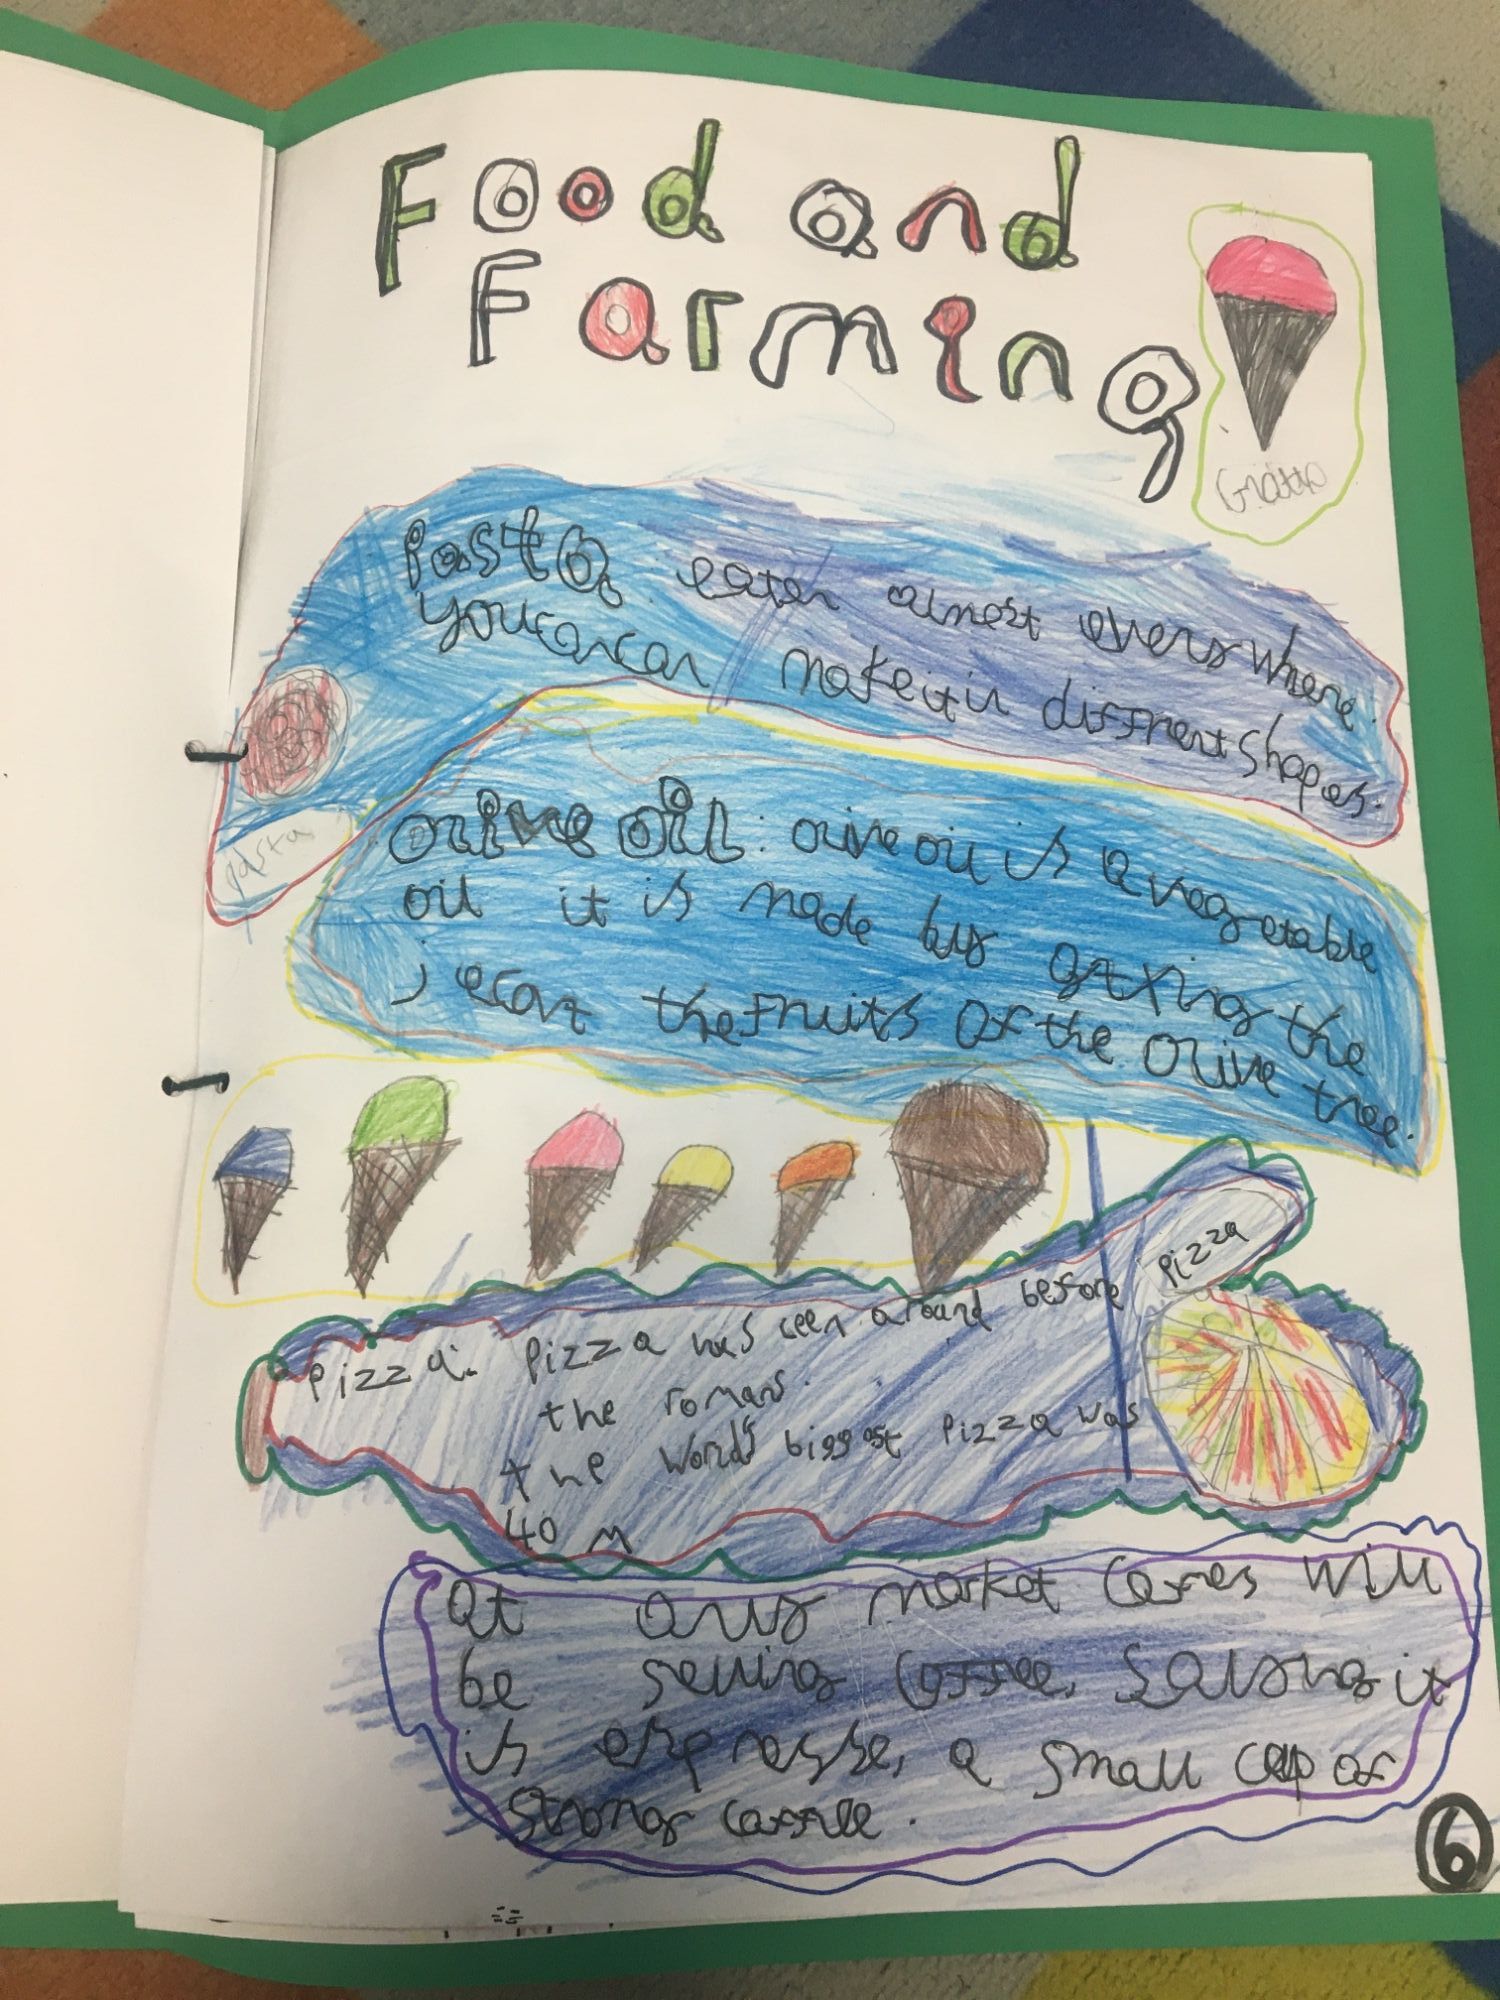 Food and
Farming
Pasta eaten almost everywhere.
you can can make it in diffrent shapes.
pasta
Olive oil: olive oil is a vegetable
oil it is made by the
the fruits of the olive tree.
Pizza
Pizza: Pizza was seen around before
the romans.
the World's biggest Pizza was
40 m
at any market cafres will
be selling coffee, it
is expresse, a small cup of
strong caffee.
6